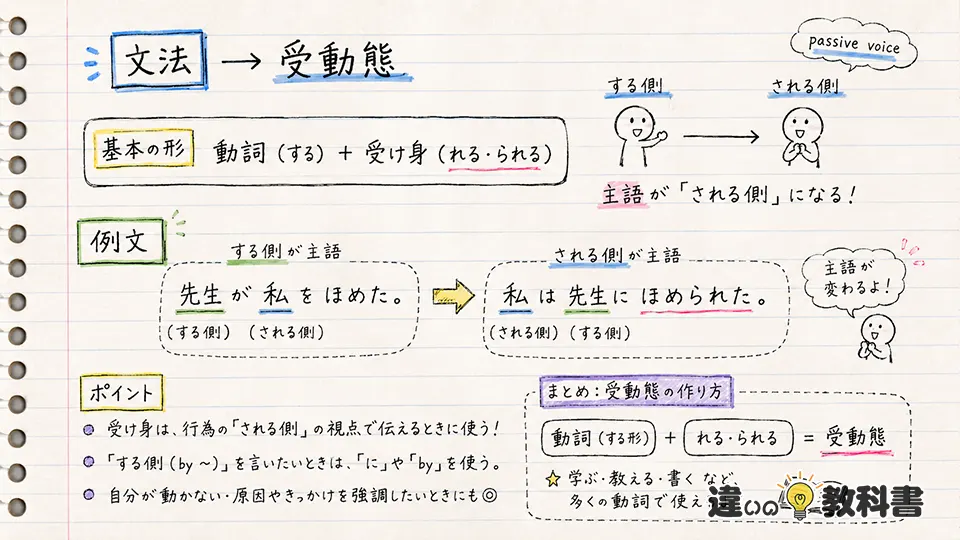 文法 → 受動態
passive voice
基本の形 動詞(する) + 受け身(れる・られる)
する側 → される側
主語が「される側」になる!
例文
する側が主語
先生が私をほめた。
(する側) (される側)
される側が主語
私は先生にほめられた。
(される側) (する側)
主語が
変わるよ!
ポイント
受け身は、行為の「される側」の視点で伝えるときに使う!
「する側(by ~)」を言いたいときは、「に」や「by」を使う。
自分が動かない・原因やきっかけを強調したいときにも◎
まとめ:受動態の作り方
動詞(する形) + れる・られる = 受動態
☆ 学ぶ・教える・書くなど、
多くの動詞で使え
違いの教科書